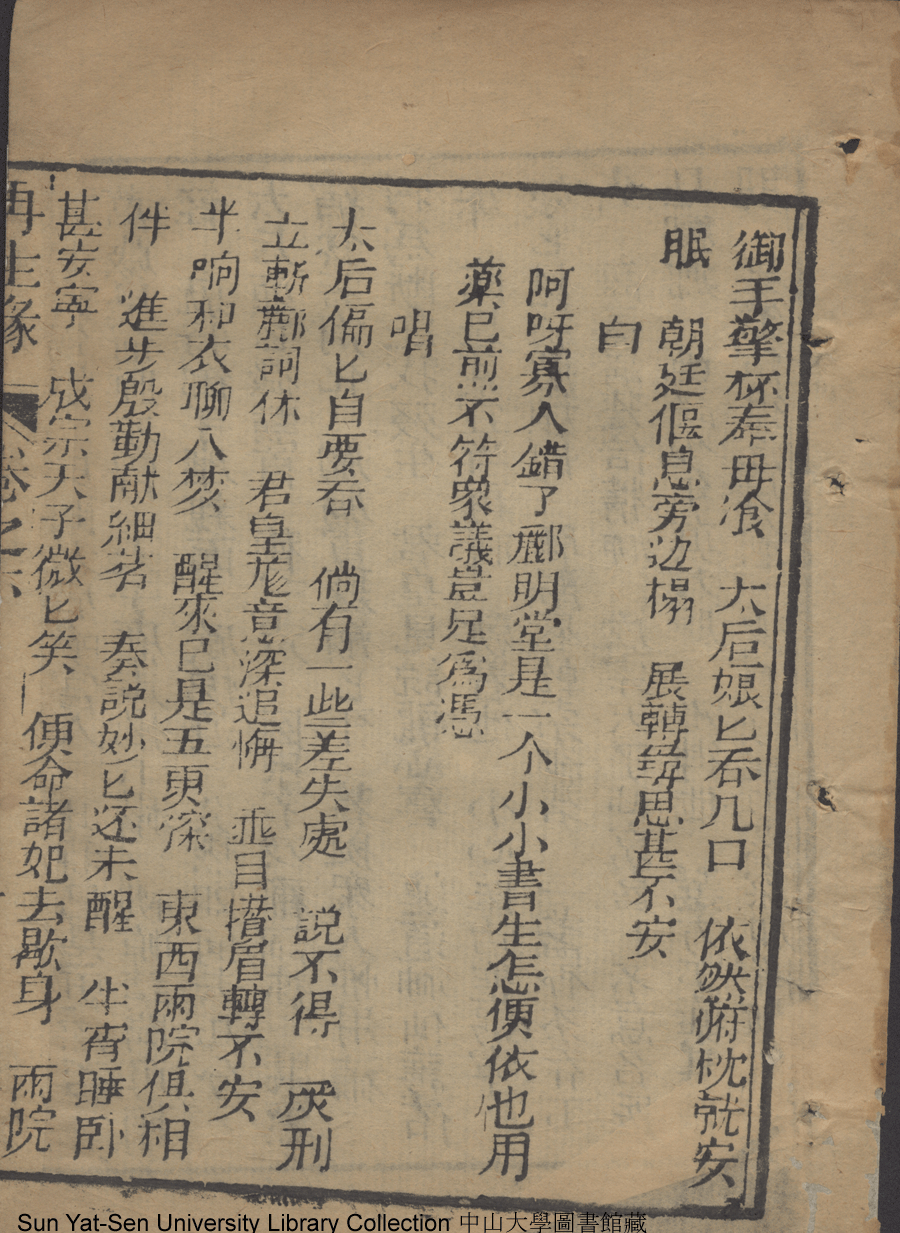 御手擎杯奉毋飡　太后娘匕吞几口　依然附枕就安
眠　朝廷偃息旁边榻　展轉尋思甚不安
白
阿呀寡人錯了酈明堂是一个小小書生怎便依他用
藥已前並不符衆議豈足爲憑
唱
太后偏匕自要吞　倘有一些差失處　説不得　灰刑
立斬酈詞休　君皇龙意深追悔　垂目措眉轉不安
半响和衣聊入梦　醒來已是五更深　東西兩院俱相
伴　進步殷勤献細茗　奏説妙匕还未醒　半宵睡卧
甚安寧　成宗天子微匕笑　便命諸妃去歇身　兩院
再生緣　卷之六
Sun Yat-Sen University Library Collection 中山大學圖書館藏